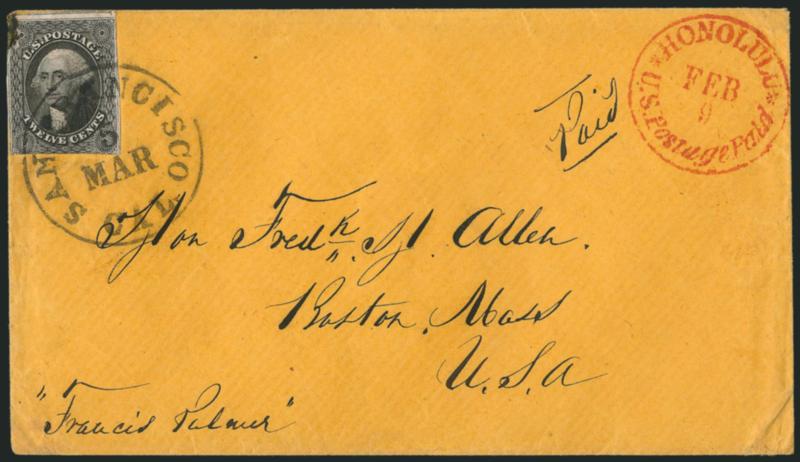 U.S. POSTAGE
TWELVE CENTS
SAN FRANCISCO
MAR
5
CAL
★HONOLULU★
FEB
9
U.S. Postage Paid
Paid
Hon Fredk. H. Allen.
Boston, Mass
U.S.A
"Francis Palmer"